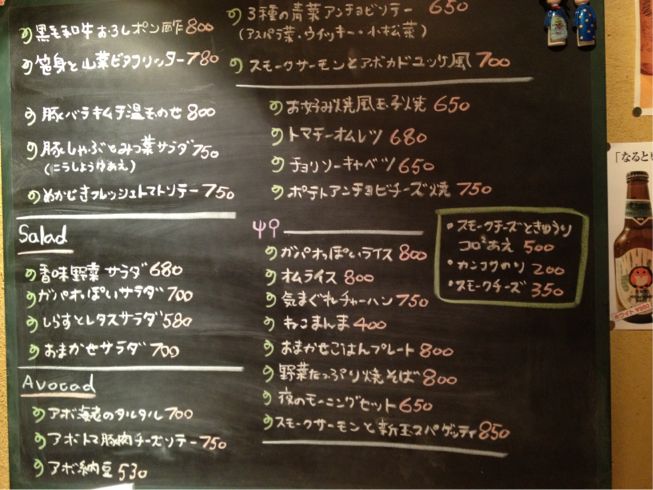 黒毛和牛おろしポン酢 800
筍身と山菜ピタフリッター 780
豚バラキムチ温玉のせ 800
豚しゃぶとみつ葉サラダ 750
(こしょうゆあえ)
めかじきフレッシュトマトソテー 750
Salad
香味野菜サラダ 680
ガパオっぽいサラダ 700
しらすとレタスサラダ 580
おまかせサラダ 700
Avocad
アボ海老のタルタル 700
アボトマ豚肉チーズソテー 750
アボ納豆 530
3種の青菜アンチョビソテー 650
(アスパラ菜・ウイッキー・小松菜)
スモークサーモンとアボカドユッケ風 700
お好み焼風玉子焼 650
トマチーオムレツ 680
チョリソーキャベツ 650
ポテトアンチョビチーズ焼 750
ガパオっぽいライス 800
オムライス 800
気まぐれチャーハン 750
ねこまんま 400
おまかせごはんプレート 800
野菜たっぷり焼そば 800
夜のモーニングセット 650
スモークサーモンと新玉スパゲッティ 850
・スモークチーズときゅうり
コロコロあえ 500
・カンコクのり 200
・スモークチーズ 350
「なると